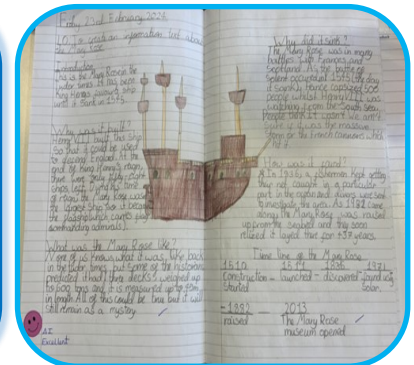 Friday 23rd February 2024
LO: To write an information text about
the Mary Rose
Introduction
This is the Mary Rose in the
Tudor times. It has been
King Henry's ship
until it sank in 1545.
Why was it built?
Henry VIII built this ship
so that it could be used
to defend England. At the
end of King Henry's reign,
there were fifty eight
ships left. During his time
of reign the Mary Rose was
the largest ship so it became
the flagship (which carries
commanding admirals).
What was the Mary Rose like?
None of us knows what it was like back
in the Tudor times, but some of the historians
predicted it had three decks, weighed up
to 600 tons and it is measured up to 45m
in length. All of this could be true but it will
still remain as a mystery.
AI
Excellent
Why did it sink?
The Mary Rose was in many
battles with France and
Scotland. As the battle of
Solent occurred in 1545 (the day
it sank), France captured 500
people whilst Henry VIII was
watching from the South Sea.
People think it wasn't
if it was the massive
or the French cannons which
hit it.
How was it found?
In 1836, a fisherman kept setting
they got caught in a particular
part in the ocean and divers went
to investigate the area. As 1982 came
along the Mary Rose was raised
up from the seabed and this soon
after it layed there for 437 years.
Time line of the Mary Rose
1510 1511 1836 1971
Construction - launched - discovered - found it
started
- 1982 - 2013
raised The Mary Rose
museum opened